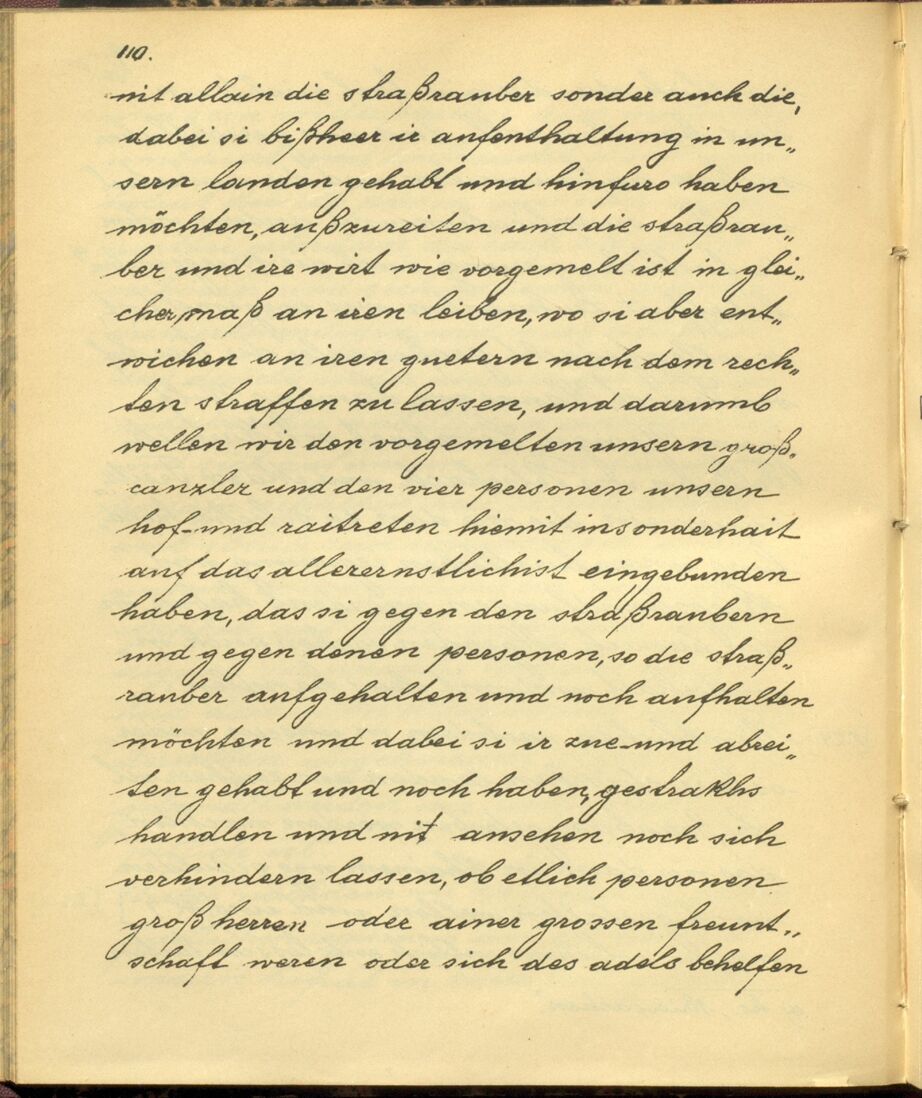 110.
nit allain die straßrauber sonder auch die,
dabei si bißheer ir aufenthaltung in un„
sern landen gehabt und hinfuro haben
möchten, außzureiten und die straßrau„
ber und ire wirt wie vorgemelt ist in glei„
cher maß an iren leiben, wo si aber ent„
wichen an iren guetern nach dem rech„
ten straffen zu lassen, und darumb
wellen wir den vorgemelten unsern groß„
canzler und den vier personen unsern
hof- und raitreten hiemit insonderhait
auf das allerernstlichist eingebunden
haben, das si gegen den straßraubern
und gegen denen personen, so die straß„
rauber aufgehalten und noch aufhalten
möchten und dabei si ir zue- und abrei„
ten gehabt und noch haben, gestrakhs
handlen und nit ansehen noch sich
verhindern lassen, ob etlich personen
groß herren oder ainer grossen freunt„
schaft weren oder sich des adels behelfen